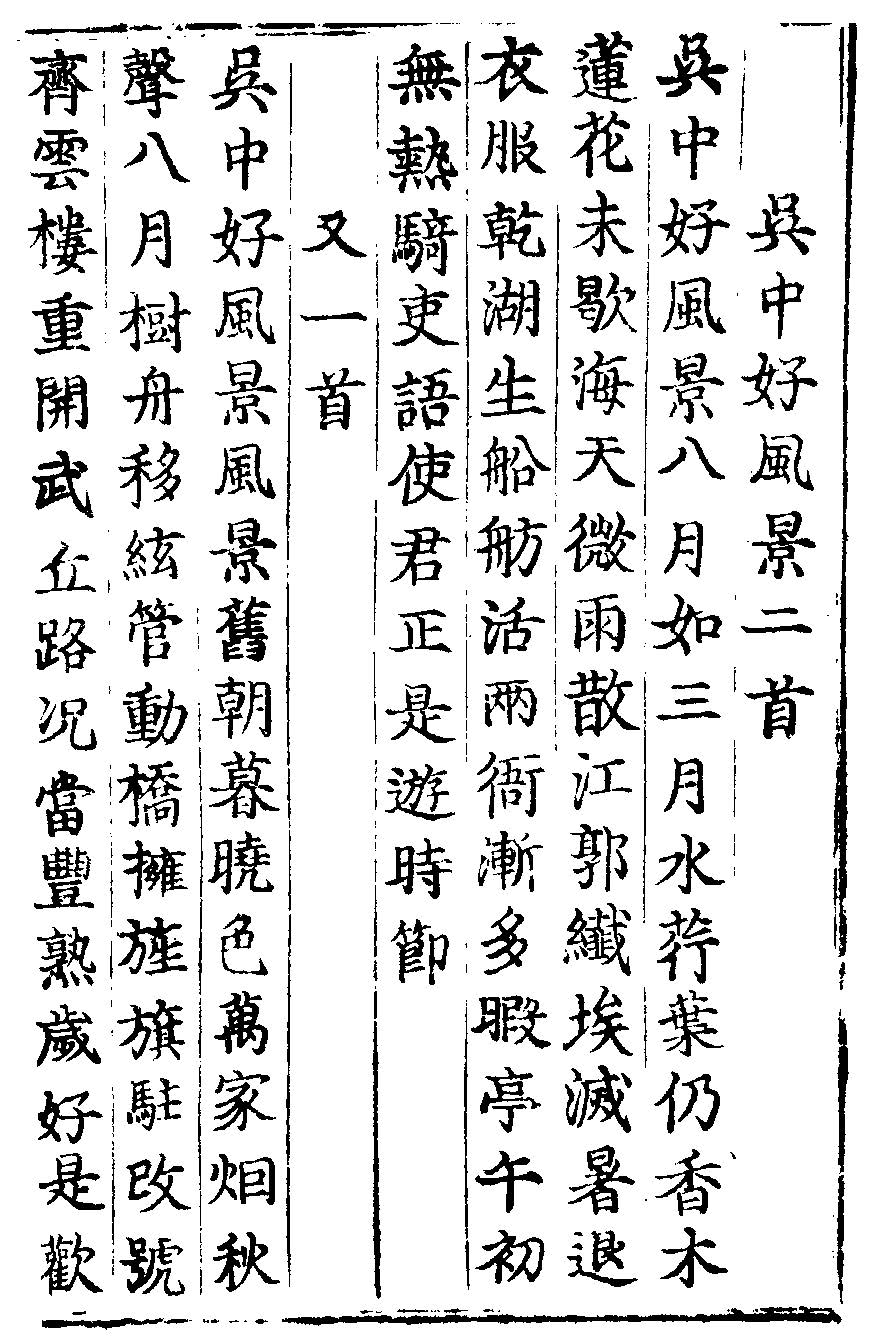 吳中好風景二首
吳中好風景八月如三月水荇葉仍香木
蓮花未歇海天微雨散江郭纎埃滅暑退
衣服乾湖生船舫活兩衙漸多暇亭午初
無熱騎吏語使君正是遊時節
又一首
吳中好風景風景舊朝暮曉色萬家烟秋
聲八月樹舟移絃管動橋擁旌旗駐改號
齊雲樓重開武丘路况當豐熟歲好是歡